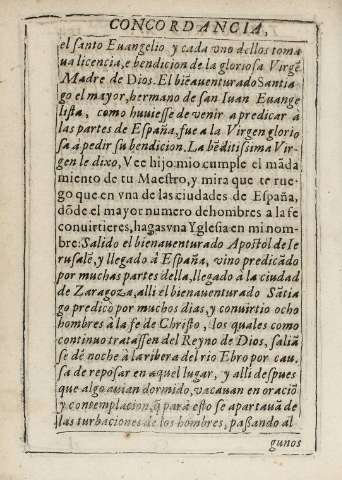 CONCORDANCIA,
el santo Euangelio y cada vno dellos toma
ua licencia, e bendicion de la gloriosa Virgẽ
Madre de Dios. El biẽauenturado Santia
go el mayor, hermano de san Iuan Euange
lista, como huuiesse de venir a predicar á
las partes de España, fue a la Virgen glorio
sa á pedir su bendicion. La bẽditissima Vir-
gen le dixo, Vee hijo mio cumple el mãda
miento de tu Maestro, y mira que te rue-
go que en vna de las ciudades de España,
dõde el mayor numero de hombres a la fe
conuirtieres, hagas vna Yglesia en mi nom-
bre: Salido el bienauenturado Apostol de Ie
rusalẽ, y llegado á España, vino predicãdo
por muchas partes della, llegado à la ciudad
de Zaragoza, alli el bienauenturado Sãtia
go predicò por muchos dias, y conuirtio ocho
hombres à la fe de Christo, los quales como
continuo tratassen del Reyno de Dios, salia
se dē noche à la ribera del rio Ebro por cau-
sa de reposar en aquel lugar, y alli despues
que algo auian dormido, vacauan en oraciõ
y contemplacion, q̃ para esto se apartauã de
las turbaciones de los hombres, passando al
gunos